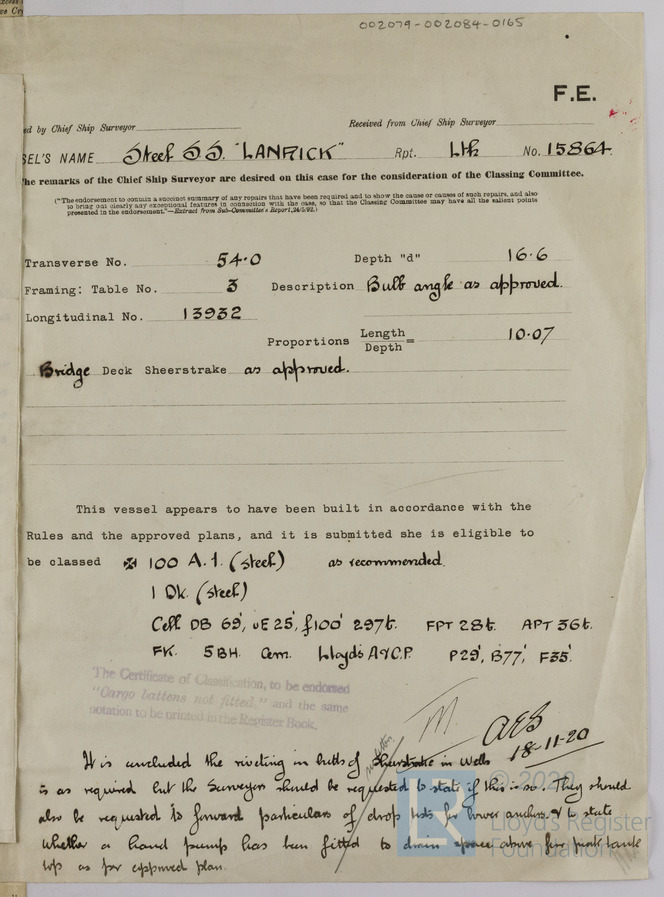 002079-002084-0165
F.E.
ed by Chief Ship Surveyor
Received from Chief Ship Surveyor
SEL'S NAME Steel SS. "LANRICK" Rpt. Lth No. 15864.
he remarks of the Chief Ship Surveyor are desired on this case for the consideration of the Classing Committee.
("The endorsement to contain a succinct summary of any repairs that have been required and to show the cause or causes of such repairs, and also
to bring out clearly any exceptional features in connection with the case, so that the Classing Committee may have all the salient points
presented in the endorsement."—Extract from Sub-Committee's Report, 24/5/92.)
Transverse No. 54.0 Depth "d" 16.6
Framing: Table No. 3 Description Bulb angle as approved.
Longitudinal No. 13932
Proportions Length/Depth = 10.07
Bridge Deck Sheerstrake as approved.
This vessel appears to have been built in accordance with the
Rules and the approved plans, and it is submitted she is eligible to
be classed ✠ 100 A.1. (steel) as recommended.
1 Dk. (steel)
Cell DB 69', uE 25', f100' 297t. FPT 28t. APT 36t.
FK. 5BH. Cem. Lloyd's A&CP. P29', B77', F35'.
The Certificate of Classification, to be endorsed
"Cargo battens not fitted," and the same
notation to be printed in the Register Book.
18-11-20
It is concluded the riveting in butts of Sheerstrake in Wells
is as required but the Surveyors should be requested to state if this is so. They should
also be requested to forward particulars of drop tests for bower anchors & to state
whether a hand pump has been fitted to drain space above fore peak tank
top as per approved plan.
© 2020
LR
Lloyd's Register
Foundation